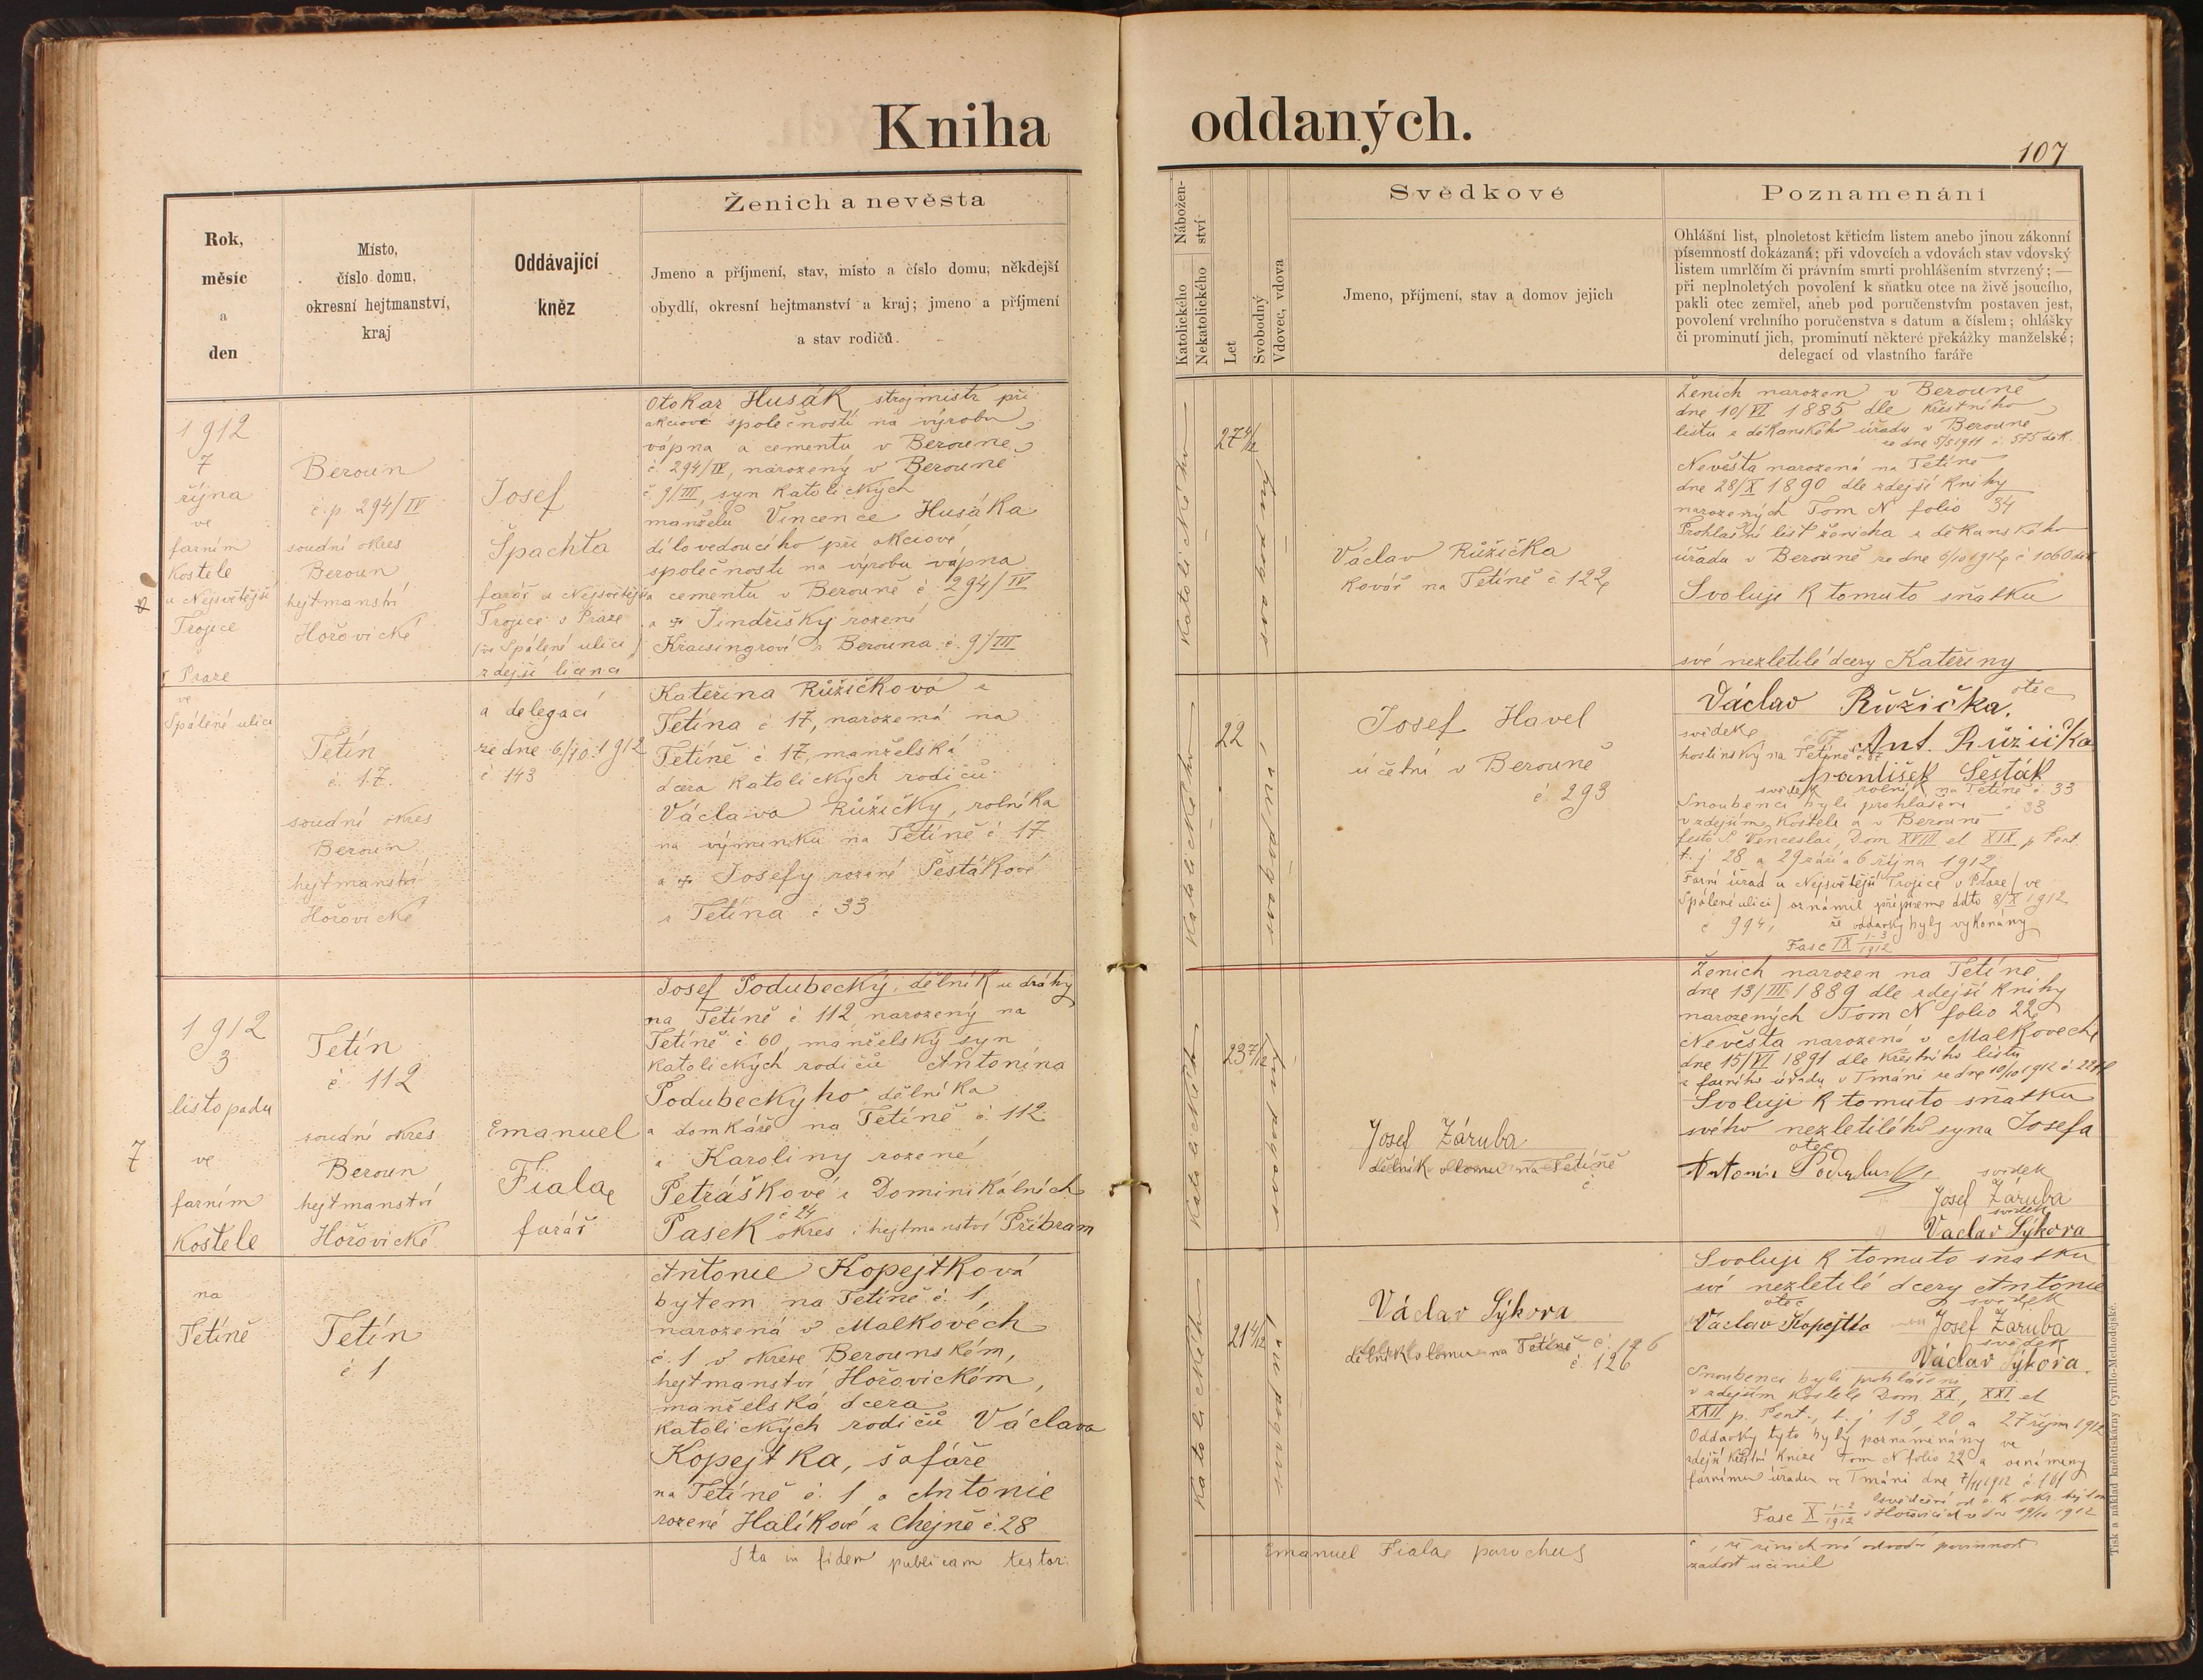 Kniha oddaných.
107
Rok,
měsíc
a
den
Místo,
číslo domu,
okresní hejtmanství,
kraj
Oddávající
kněz
Ženich a nevěsta
Jmeno a příjmení, stav, místo a číslo domu, někdejší
obydlí, okresní hejtmanství a kraj; jmeno a příjmení
a stav rodičů.
Nábožen-
ství
Katolického
Nekatolického
Let
Svobodný
Vdovec, vdova
Svědkové
Jmeno, příjmení, stav a domov jejich
Poznamenání
Ohlášní list, plnoletost křticím listem anebo jinou zákonní
písemností dokázaná; při vdovcích a vdovách stav vdovský
listem umrlčím či právním smrti prohlášením stvrzený; —
při neplnoletých povolení k sňatku otce na živě jsoucího,
pakli otec zemřel, aneb pod poručenstvím postaven jest,
povolení vrchního poručenstva s datum a číslem; ohlášky
či prominutí jich, prominutí některé překážky manželské;
delegací od vlastního faráře
1912
7
října
ve
farním
Kostele
u Nejsvětější
Trojice
v Praze
ve
Spálené ulici
Beroun
č.p. 294/IV
soudní okres
Beroun
hejtmanství
Hořovické
Josef
Špachta
farář u Nejsvětější
Trojice v Praze
(ve Spálené ulici)
zdejší licencí
a delegací
ze dne 6./10. 1912
č 143
Otokar Husák strojmistr při
akciové společnosti na výrobu
vápna a cementu v Berouně
č. 294/IV, narozený v Berouně
č 9/III, syn katolických
manželů Vincence Husáka
dílovedoucího při akciové
společnosti na výrobu vápna
a cementu v Berouně č. 294/IV
a Jindřišky rozené
z Berouna č. 9/III
Katolického
27 4/12
svobodný
Václav Růžička
Kovář na Tetíně č 122
Ženich narozen v Berouně
dne 10/VI 1885 dle křestního
listu z děkanského úřadu v Berouně
ze dne 5/5 1911 č. 575 děk.
Nevěsta narozená na Tetíně
dne 28/X 1890 dle zdejší knihy
narozených Tom N folio 34
Prohlašní list ženicha z děkanského
úřadu v Berouně ze dne 6/10 1912 č 1060 děk
Svoluji k tomuto sňatku
své nezletilé dcery Kateřiny
otec
Václav Růžička.
Tetín
č. 17.
soudní okres
Beroun
hejtmanství
Hořovické
Kateřina Růžičková z
Tetína č 17, narozená na
Tetíně č 17, manželská
dcera katolických rodičů
Václava Růžičky, rolníka
na výminku na Tetíně č 17
a Josefy rozené Šestákové
z Tetína č 33
Katolického
22
svobodná
Josef Havel
účetní v Berouně
č. 293
svědek
Ant. Růžička
hostinský na Tetíně č 67
František Šesták
svědek rolník na Tetíně č. 33
Snoubenci byli prohlášeni
v zdejším Kostele a v Berouně
festo S. Venceslai, Dom XVIII et XIX p Pent.
t. j 28 a 29 září a 6 října 1912
Farní úřad u Nejsvětější Trojice v Praze (ve
Spálené ulici) oznámil přípisem ddto 8/X 1912
č 994, že oddavky byly vykonány
Fasc IX 1-3/1912
7
1912
3
listopadu
ve
farním
Kostele
na
Tetíně
Tetín
č 112
soudní okres
Beroun
hejtmanství
Hořovické
Emanuel
Fiala
farář
Josef Podubecký, dělník u dráhy
na Tetíně č. 112 narozený na
Tetíně č 60, manželský syn
katolických rodičů Antonína
Podubeckýho, dělníka
a domkáře na Tetíně č. 112
a Karoliny rozené
Petráškové z Dominikálních
Pasek č 24 okres i hejtmanství Příbram
Katolického
23 7/12
svobodný
Josef Záruba
dělník v lomu na Tetíně
č.
Ženich narozen na Tetíně
dne 13/III 1889 dle zdejší knihy
narozených Tom N folio 22
Nevěsta narozená v Malkovech
dne 15/VI 1891 dle křestního listu
z farního úřadu v Tmáni ze dne 10/10 1912 č
Svoluji k tomuto sňatku
svého nezletilého syna Josefa
otec
svědek
Josef Záruba
svědek
Vaclav Sýkora
Tetín
č 1
Antonie Kopejtková
bytem na Tetíně č. 1,
narozená v Malkovech
č. 1 v okrese Berounském,
hejtmanství Hořovickém,
manželská dcera
katolických rodičů Václava
Kopejtka, šafáře
na Tetíně č. 1 a Antonie
rozené Halíkové z Chejně č. 28
Katolického
21 4/12
svobodná
Václav Sýkora
dělník v lomu na Tetíně
č. 126
Svoluji k tomuto sňatku
své nezletilé dcery Antonie
otec svědek
Vaclav Kopejtko Josef Zaruba
svědek
Václav Sýkora.
Snoubenci byli prohlášeni
v zdejším kostele Dom. XX, XXI et
XXII p. Pent., t. j 13, 20 a 27 října 1912
Oddavky tyto byly poznamenány ve
zdejší křestní knize Tom N folio 22 a oznámeny
farnímu úřadu ve Tmáni dne 7/11 1912 č 161
Osvědčení od c. k. okr. hejtm
Fasc X 1-2/1912 v Hořovicích ze dne 19/10 1912
č , že ženich své odvodní povinnosti
zadost učinil
Ita in fidem publicam testor: Emanuel Fiala parochus
Tisk a náklad knihtiskárny Cyrillo-Methodějské.